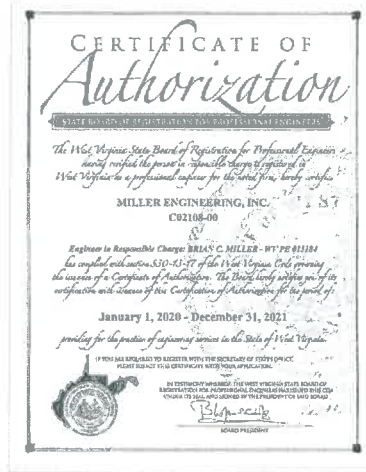 CERTIFICATE OF
Authorization
STATE BOARD OF REGISTRATION FOR PROFESSIONAL ENGINEERS
The West Virginia State Board of Registration for Professional Engineers
having verified the person in responsible charge is registered in
West Virginia as a professional engineer for the noted firm, hereby certifies
MILLER ENGINEERING, INC.
C02108-00
Engineer in Responsible Charge: BRIAN C. MILLER - WV PE
has complied with section of the West Virginia Code governing
the issuance of a Certificate of Authorization. The Board hereby notifies you of its
certification with issuance of this Certification of Authorization for the period of:
January 1, 2020 - December 31, 2021
providing for the practice of engineering services in the State of West Virginia.
IF YOU ARE REQUIRED TO REGISTER WITH THE SECRETARY OF STATE'S OFFICE,
PLEASE SUBMIT THIS CERTIFICATE WITH YOUR APPLICATION.
IN TESTIMONY WHEREOF, THE WEST VIRGINIA STATE BOARD OF
REGISTRATION FOR PROFESSIONAL ENGINEERS HAS ISSUED THIS COA
UNDER ITS SEAL, AND SIGNED BY THE PRESIDENT OF SAID BOARD
BOARD PRESIDENT